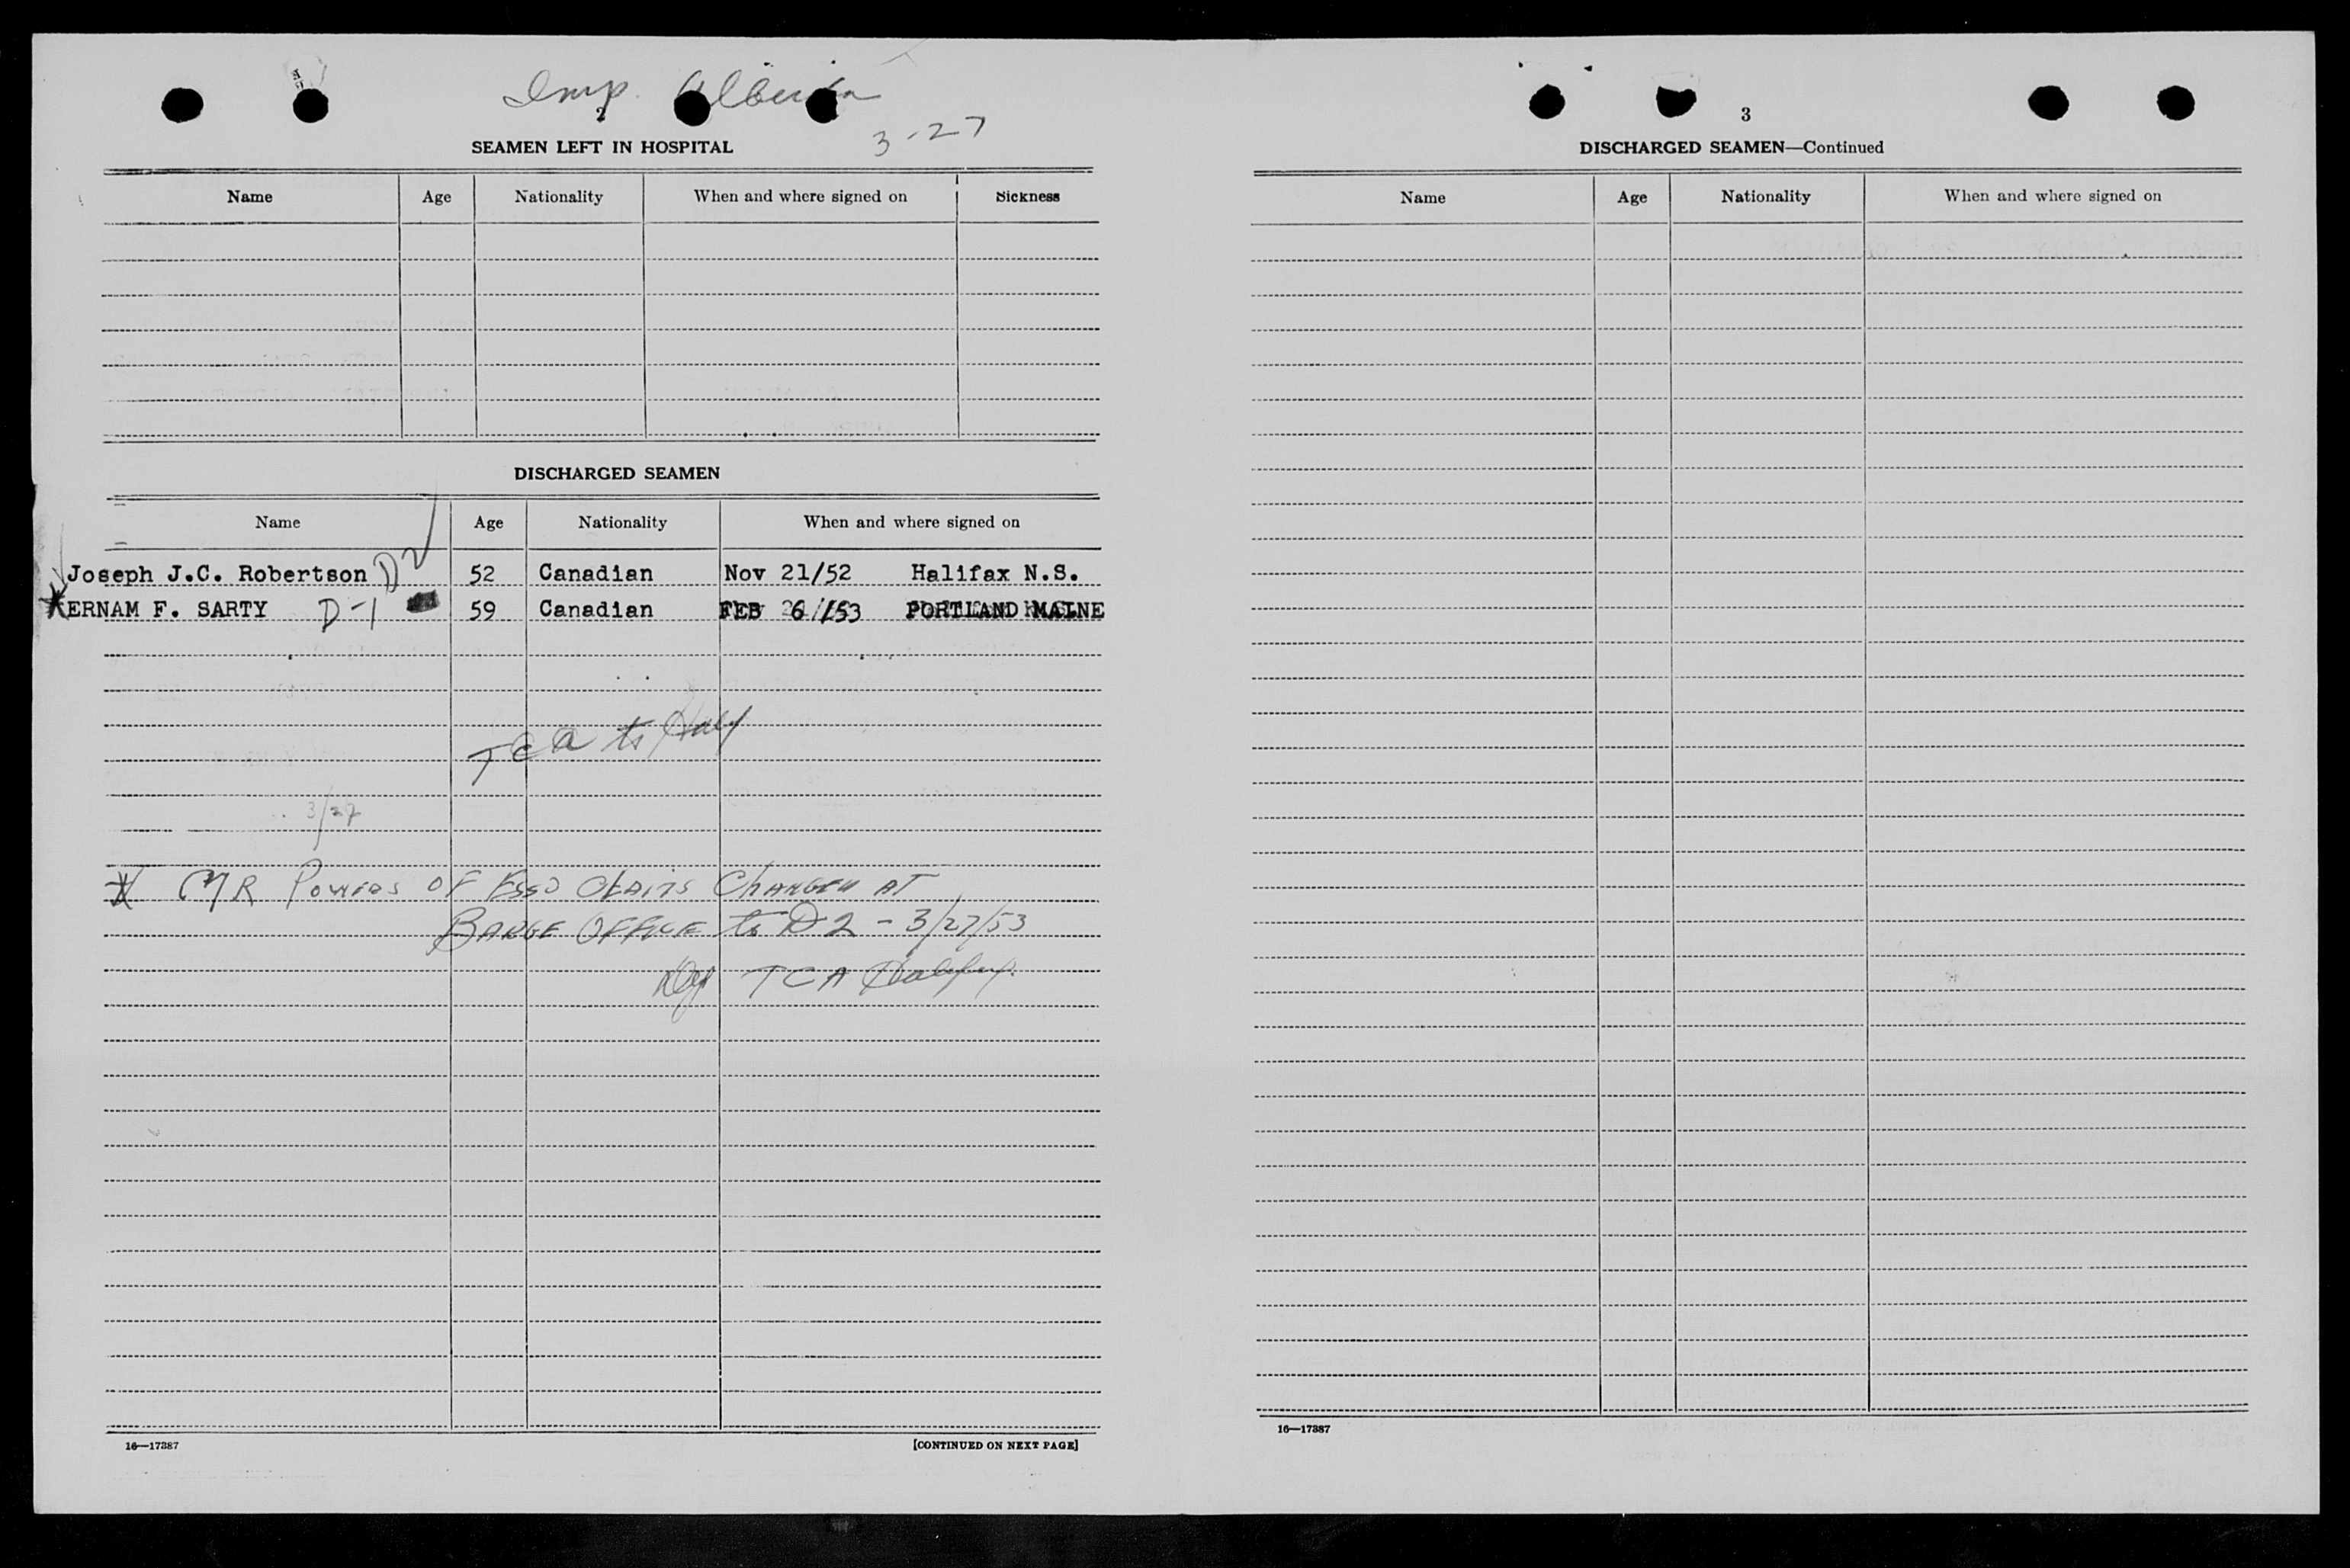 Imp. Alberta
2
3-27
SEAMEN LEFT IN HOSPITAL
Name Age Nationality When and where signed on Sickness
DISCHARGED SEAMEN
Name Age Nationality When and where signed on
Joseph J.C. Robertson D2 52 Canadian Nov 21/52 Halifax N.S.
KERNAM F. SARTY D-1 59 Canadian FEB 6/53 PORTLAND MAINE
TCA to Half
3/27
MR Powers OF ESSO CLAIMS CHANGED AT
BARGE OFFICE to D2 - 3/27/53
TCA Halifax.
16—17387
[CONTINUED ON NEXT PAGE]
3
DISCHARGED SEAMEN—Continued
Name Age Nationality When and where signed on
16—17387